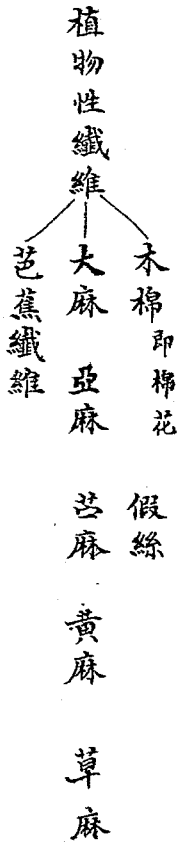 植物性纖維
木棉即棉花　假絲
大麻　亞麻　苎麻　黃麻　草麻
芭蕉纖維